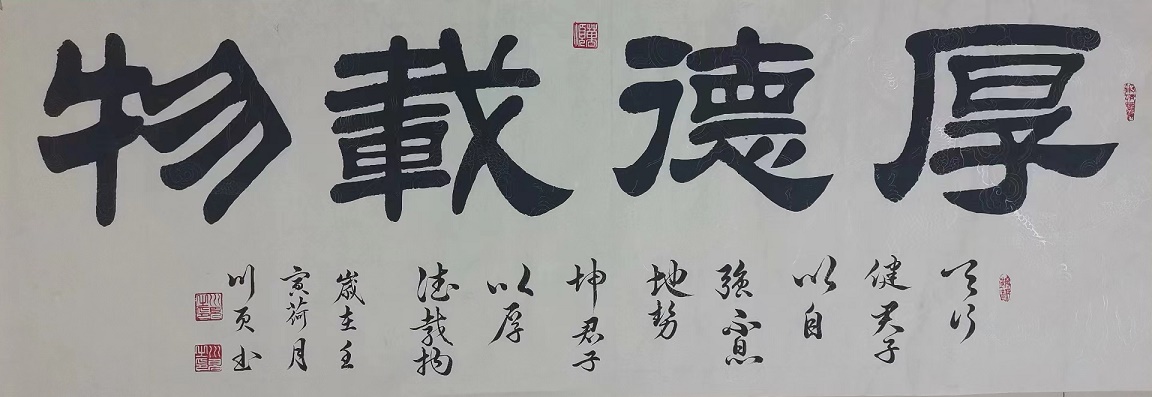 厚德載物
天行
健君子
以自
強不息
地勢
坤君子
以厚
德載物
歲在壬
寅荷月
川頁書